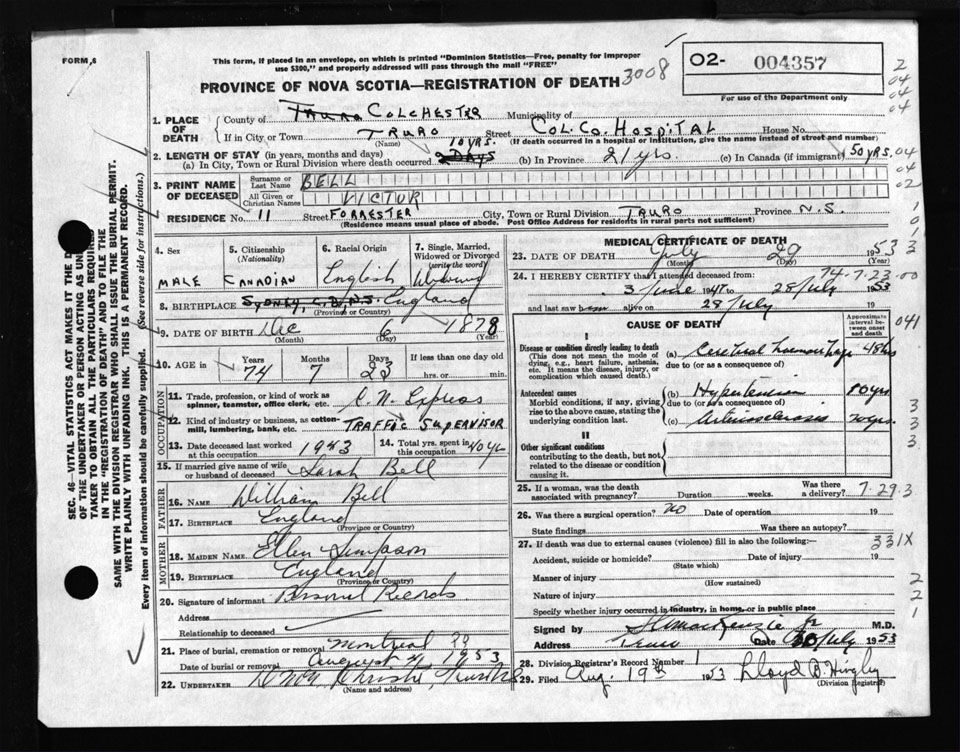 FORM 6
This form, if placed in an envelope, on which is printed "Dominion Statistics—Free, penalty for improper
use $300," and properly addressed will pass through the mail "FREE"
PROVINCE OF NOVA SCOTIA—REGISTRATION OF DEATH
3008
02- 004357
For use of the Department only
2
04
04
04
1. PLACE OF DEATH
County of Truro COLCHESTER Municipality of
If in City or Town TRURO Street COL. CO. HOSPITAL House No.
(Name) (If death occurred in a hospital or institution, give the name instead of street and number)
2. LENGTH OF STAY (in years, months and days)
(a) In City, Town or Rural Division where death occurred 2 DAYS 10 YRS. (b) In Province 21 yrs. (c) In Canada (if immigrant) 50 YRS. 04
04
3. PRINT NAME OF DECEASED
Surname or Last Name BELL 02
All Given or Christian Names VICTOR
RESIDENCE No. 11 Street FORRESTER City, Town or Rural Division TRURO Province N.S.
(Residence means usual place of abode. Post Office Address for residents in rural parts not sufficient)
SEC. 46—VITAL STATISTICS ACT MAKES IT THE
OF THE UNDERTAKER OR PERSON ACTING AS
TAKER TO OBTAIN ALL THE PARTICULARS
IN THE "REGISTRATION OF DEATH" AND TO FILE THE
SAME WITH THE DIVISION REGISTRAR WHO SHALL ISSUE THE BURIAL PERMIT.
WRITE PLAINLY WITH UNFADING INK. THIS IS A PERMANENT RECORD.
Every item of information should be carefully supplied. (See reverse side for instructions.)
4. Sex MALE
5. Citizenship (Nationality) CANADIAN
6. Racial Origin English
7. Single, Married, Widowed or Divorced (write the word)
8. BIRTHPLACE SYDNEY, C.B., N.S. England
(Province or Country)
9. DATE OF BIRTH Dec 6 1878
(Month) (Year)
10. AGE in Years 74 Months 7 Days 23 If less than one day old
hrs. or min.
OCCUPATION
11. Trade, profession, or kind of work as
spinner, teamster, office clerk, etc. C.N. Express
12. Kind of industry or business, as cotton-
mill, lumbering, bank, etc. TRAFFIC SUPERVISOR
13. Date deceased last worked
at this occupation 1943
14. Total yrs. spent in
this occupation 40 yrs
15. If married give name of wife
or husband of deceased Sarah Bell
FATHER
16. NAME William Bell
17. BIRTHPLACE England
(Province or Country)
MOTHER
18. MAIDEN NAME Ellen Simpson
19. BIRTHPLACE England
(Province or Country)
20. Signature of informant Personal Records
Address
Relationship to deceased
21. Place of burial, cremation or removal Montreal
Date of burial or removal August 1953
22. UNDERTAKER
(Name and address)
MEDICAL CERTIFICATE OF DEATH
23. DATE OF DEATH July 29 1953
(Month) (Year)
24. I HEREBY CERTIFY that I attended deceased from: 74-7-23-00
3 June 1947 to 28 July 1953
and last saw him alive on 28 July 19
CAUSE OF DEATH
Approximate interval between onset and death
041
I
Disease or condition directly leading to death
(This does not mean the mode of
dying, e.g., heart failure, asthenia,
etc. It means the disease, injury, or
complication which caused death.)
(a) Cerebral haemorrhage 48 hrs
due to (or as a consequence of)
Antecedent causes
Morbid conditions, if any, giving
rise to the above cause, stating the
underlying condition last.
(b) Hypertension 10 yrs
due to (or as a consequence of)
(c) Arteriosclerosis
II
Other significant conditions
contributing to the death, but not
related to the disease or condition
causing it.
25. If a woman, was the death
associated with pregnancy? Duration weeks. Was there
a delivery? 7-29-3
26. Was there a surgical operation? no Date of operation 19
State findings Was there an autopsy?
27. If death was due to external causes (violence) fill in also the following:— 331X
Accident, suicide or homicide? Date of injury 19
(State which)
Manner of injury
(How sustained)
Nature of injury
Specify whether injury occurred in industry, in home, or in public place
Signed by M.D.
Address Truro Date 30 July 1953
28. Division Registrar's Record Number 1
29. Filed Aug. 19th 1953 Lloyd
(Division Registrar)